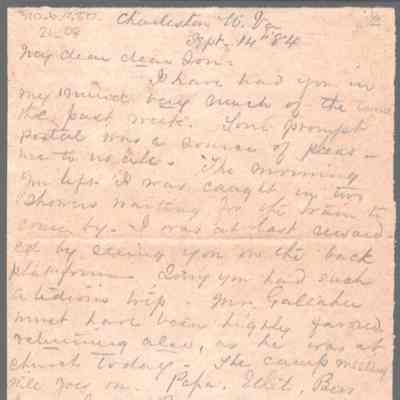 Charleston W. Va
Sept. 14" 84
My dear dear Son:
I have had you in
my mind very much of the time
the past week. Your prompt
postal was a source of pleas-
ure to us all. The morning
you left I was caught in two
showers waiting for the train to
come by. I was at last reward-
ed by seeing you on the back
platform. Sorry you had such
a tedious trip. Mr. Gallaher
must have been highly favored
returning also, as he was at
church today. The camp meeting
still goes on. Papa,